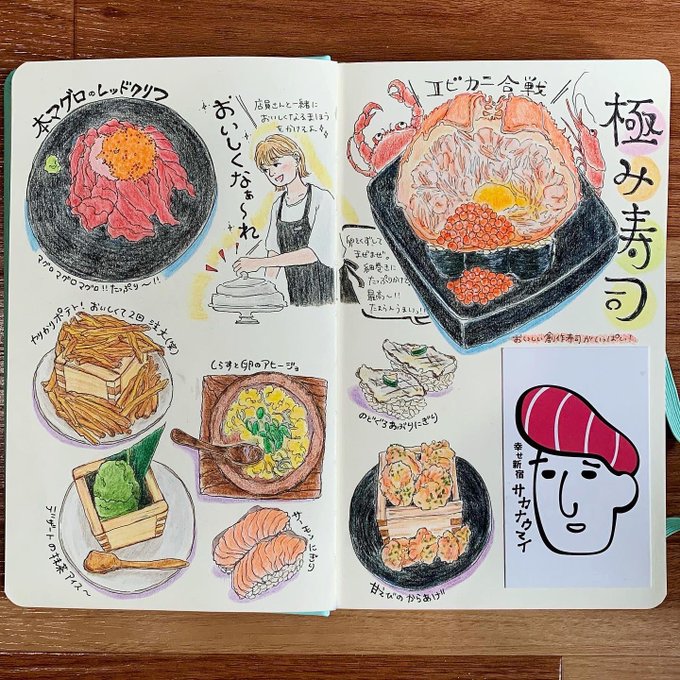 本マグロのレッドクリフ
マグロマグロマグロ!!たっぷり〜!!
店員さんと一緒に
おいしくなるまほう
をかけてね
おいしくなぁ〜れ
カリカリポテト!おいしくて2回注文(笑)
しらすと卵のアヒージョ
デザートの抹茶アイス〜
サーモンにぎり
エビカニ合戦
極み寿司
卵をくずして
まぜまぜ。
細巻きに
たっぷりかけて
最高〜!!
たまらんうまい!!
おいしい創作寿司がいっぱい!
のどぐろあぶりにぎり
甘えびのからあげ!!
幸せ新宿
サカナウマイ